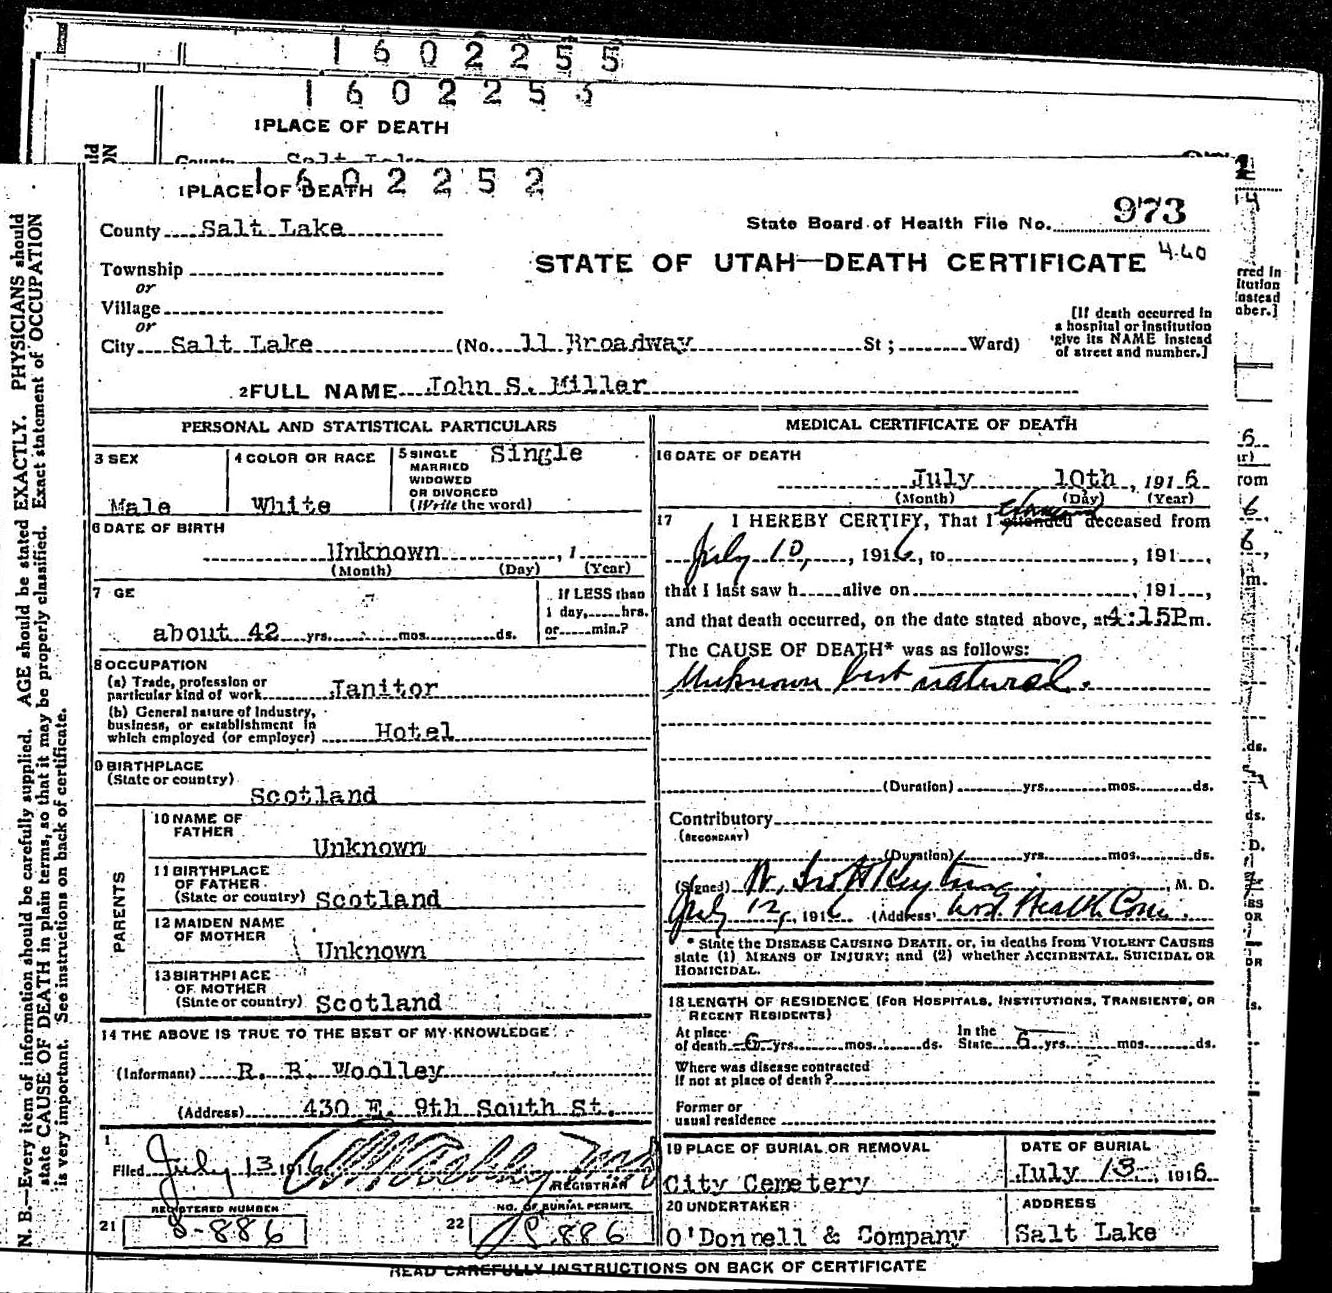 1602255
1602253
1 PLACE OF DEATH
County Salt Lake
1602252
1 PLACE OF DEATH
County Salt Lake
State Board of Health File No. 973
Township
or
STATE OF UTAH—DEATH CERTIFICATE 4-60
Village
or
City Salt Lake (No. 11 Broadway St; Ward)
[If death occurred in
a hospital or institution
give its NAME instead
of street and number.]
2 FULL NAME John S. Miller
PERSONAL AND STATISTICAL PARTICULARS
3 SEX
Male
4 COLOR OR RACE
White
5 SINGLE
MARRIED
WIDOWED
OR DIVORCED
(Write the word)
Single
6 DATE OF BIRTH
Unknown , 1
(Month) (Day) (Year)
7 GE
about 42 yrs. mos. ds.
If LESS than
1 day, hrs.
or min.?
8 OCCUPATION
(a) Trade, profession or
particular kind of work Janitor
(b) General nature of Industry,
business, or establishment in
which employed (or employer) Hotel
9 BIRTHPLACE
(State or country)
Scotland
PARENTS
10 NAME OF
FATHER
Unknown
11 BIRTHPLACE
OF FATHER
(State or country) Scotland
12 MAIDEN NAME
OF MOTHER
Unknown
13 BIRTHPLACE
OF MOTHER
(State or country) Scotland
14 THE ABOVE IS TRUE TO THE BEST OF MY KNOWLEDGE
(Informant) R. B. Woolley
(Address) 430 E. 9th South St.
Filed July 13 191
REGISTRAR
REGISTERED NUMBER
21 S-886
NO. OF BURIAL PERMIT
22 S 886
MEDICAL CERTIFICATE OF DEATH
16 DATE OF DEATH
July 10th , 1916
(Month) (Day) (Year)
17 I HEREBY CERTIFY, That I attended deceased from
July 10, , 1916, to , 191 ,
that I last saw h alive on , 191 ,
and that death occurred, on the date stated above, at 4:15P m.
The CAUSE OF DEATH* was as follows:
Unknown but natural.
(Duration) yrs. mos. ds.
Contributory
(SECONDARY)
(Duration) yrs. mos. ds.
(Signed) , M. D.
July 12, 1916 (Address) Health Com.
* State the DISEASE CAUSING DEATH, or, in deaths from VIOLENT CAUSES
state (1) MEANS OF INJURY; and (2) whether ACCIDENTAL, SUICIDAL OR
HOMICIDAL.
18 LENGTH OF RESIDENCE (FOR HOSPITALS, INSTITUTIONS, TRANSIENTS, OR
RECENT RESIDENTS)
At place
of death 6 yrs. mos. ds.
In the
State 6 yrs. mos. ds.
Where was disease contracted
if not at place of death?
Former or
usual residence
19 PLACE OF BURIAL OR REMOVAL
City Cemetery
DATE OF BURIAL
July 13 , 1916
20 UNDERTAKER
O'Donnell & Company
ADDRESS
Salt Lake
READ CAREFULLY INSTRUCTIONS ON BACK OF CERTIFICATE
N. B.—Every item of information should be carefully supplied. AGE should be stated EXACTLY. PHYSICIANS should
state CAUSE OF DEATH in plain terms, so that it may be properly classified. Exact statement of OCCUPATION
is very important. See instructions on back of certificate.